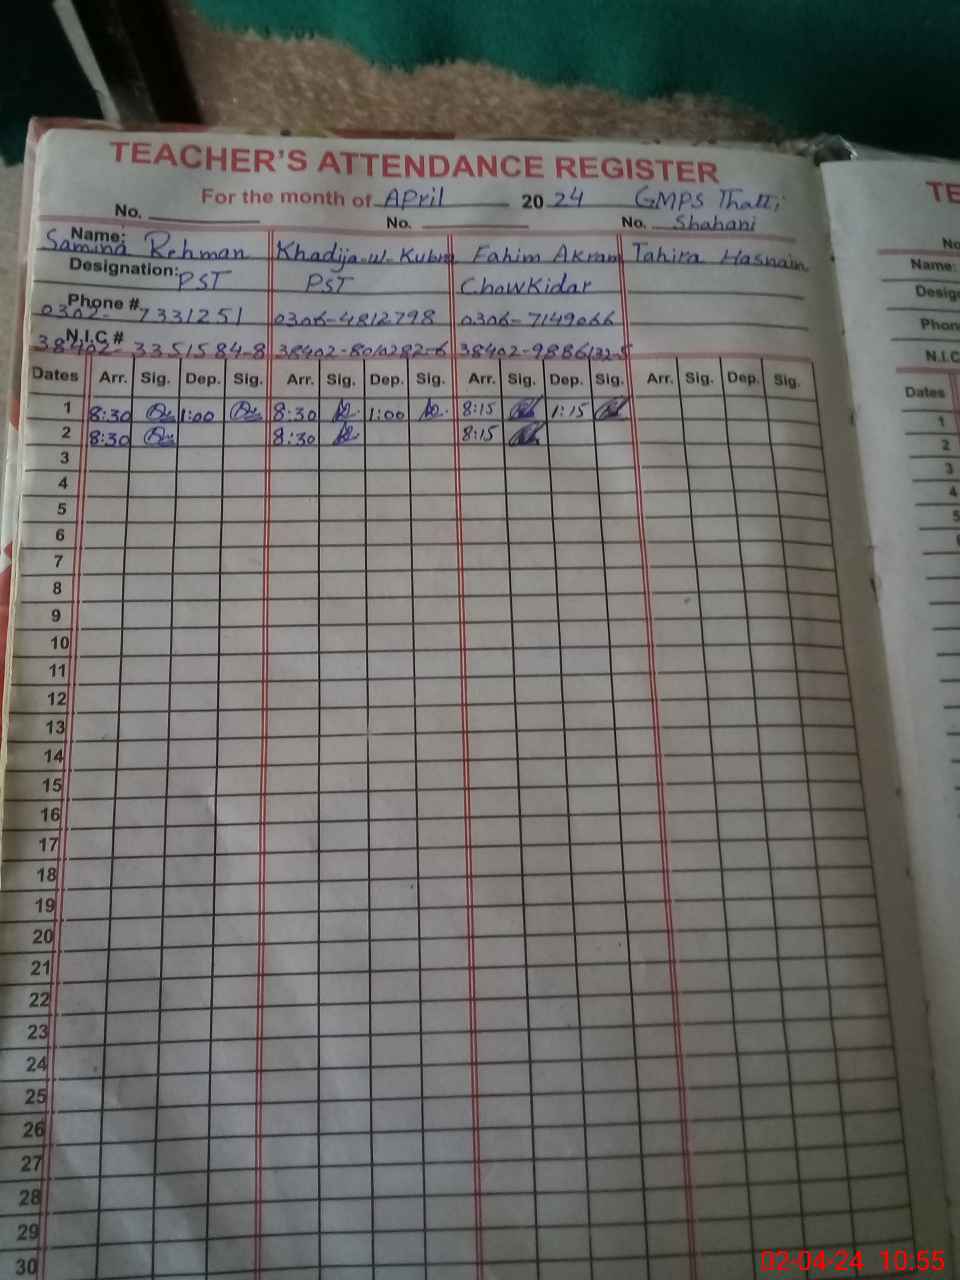 TEACHER'S ATTENDANCE REGISTER
For the month of April 2024 GMPS Thatti
No. No. No. Shahani
Name: Samina Rehman Khadija-ul-Kubra Fahim Akram Tahira Hasnain
Designation: PST PST Chowkidar
Phone # 0302-7331251 0306-4812798 0306-7149066
N.I.C # 38402-3351584-8 38402-8010282-6 38402-9886132-5
Dates Arr. Sig. Dep. Sig. Arr. Sig. Dep. Sig. Arr. Sig. Dep. Sig. Arr. Sig. Dep. Sig.
1 8:30 1:00 8:30 1:00 8:15 1:15
2 8:30 8:30 8:15
3
4
5
6
7
8
9
10
11
12
13
14
15
16
17
18
19
20
21
22
23
24
25
26
27
28
29
30
TE
No
Name:
Desig
Phon
N.I.C
Dates
1
2
3
4
5
02-04-24 10:55